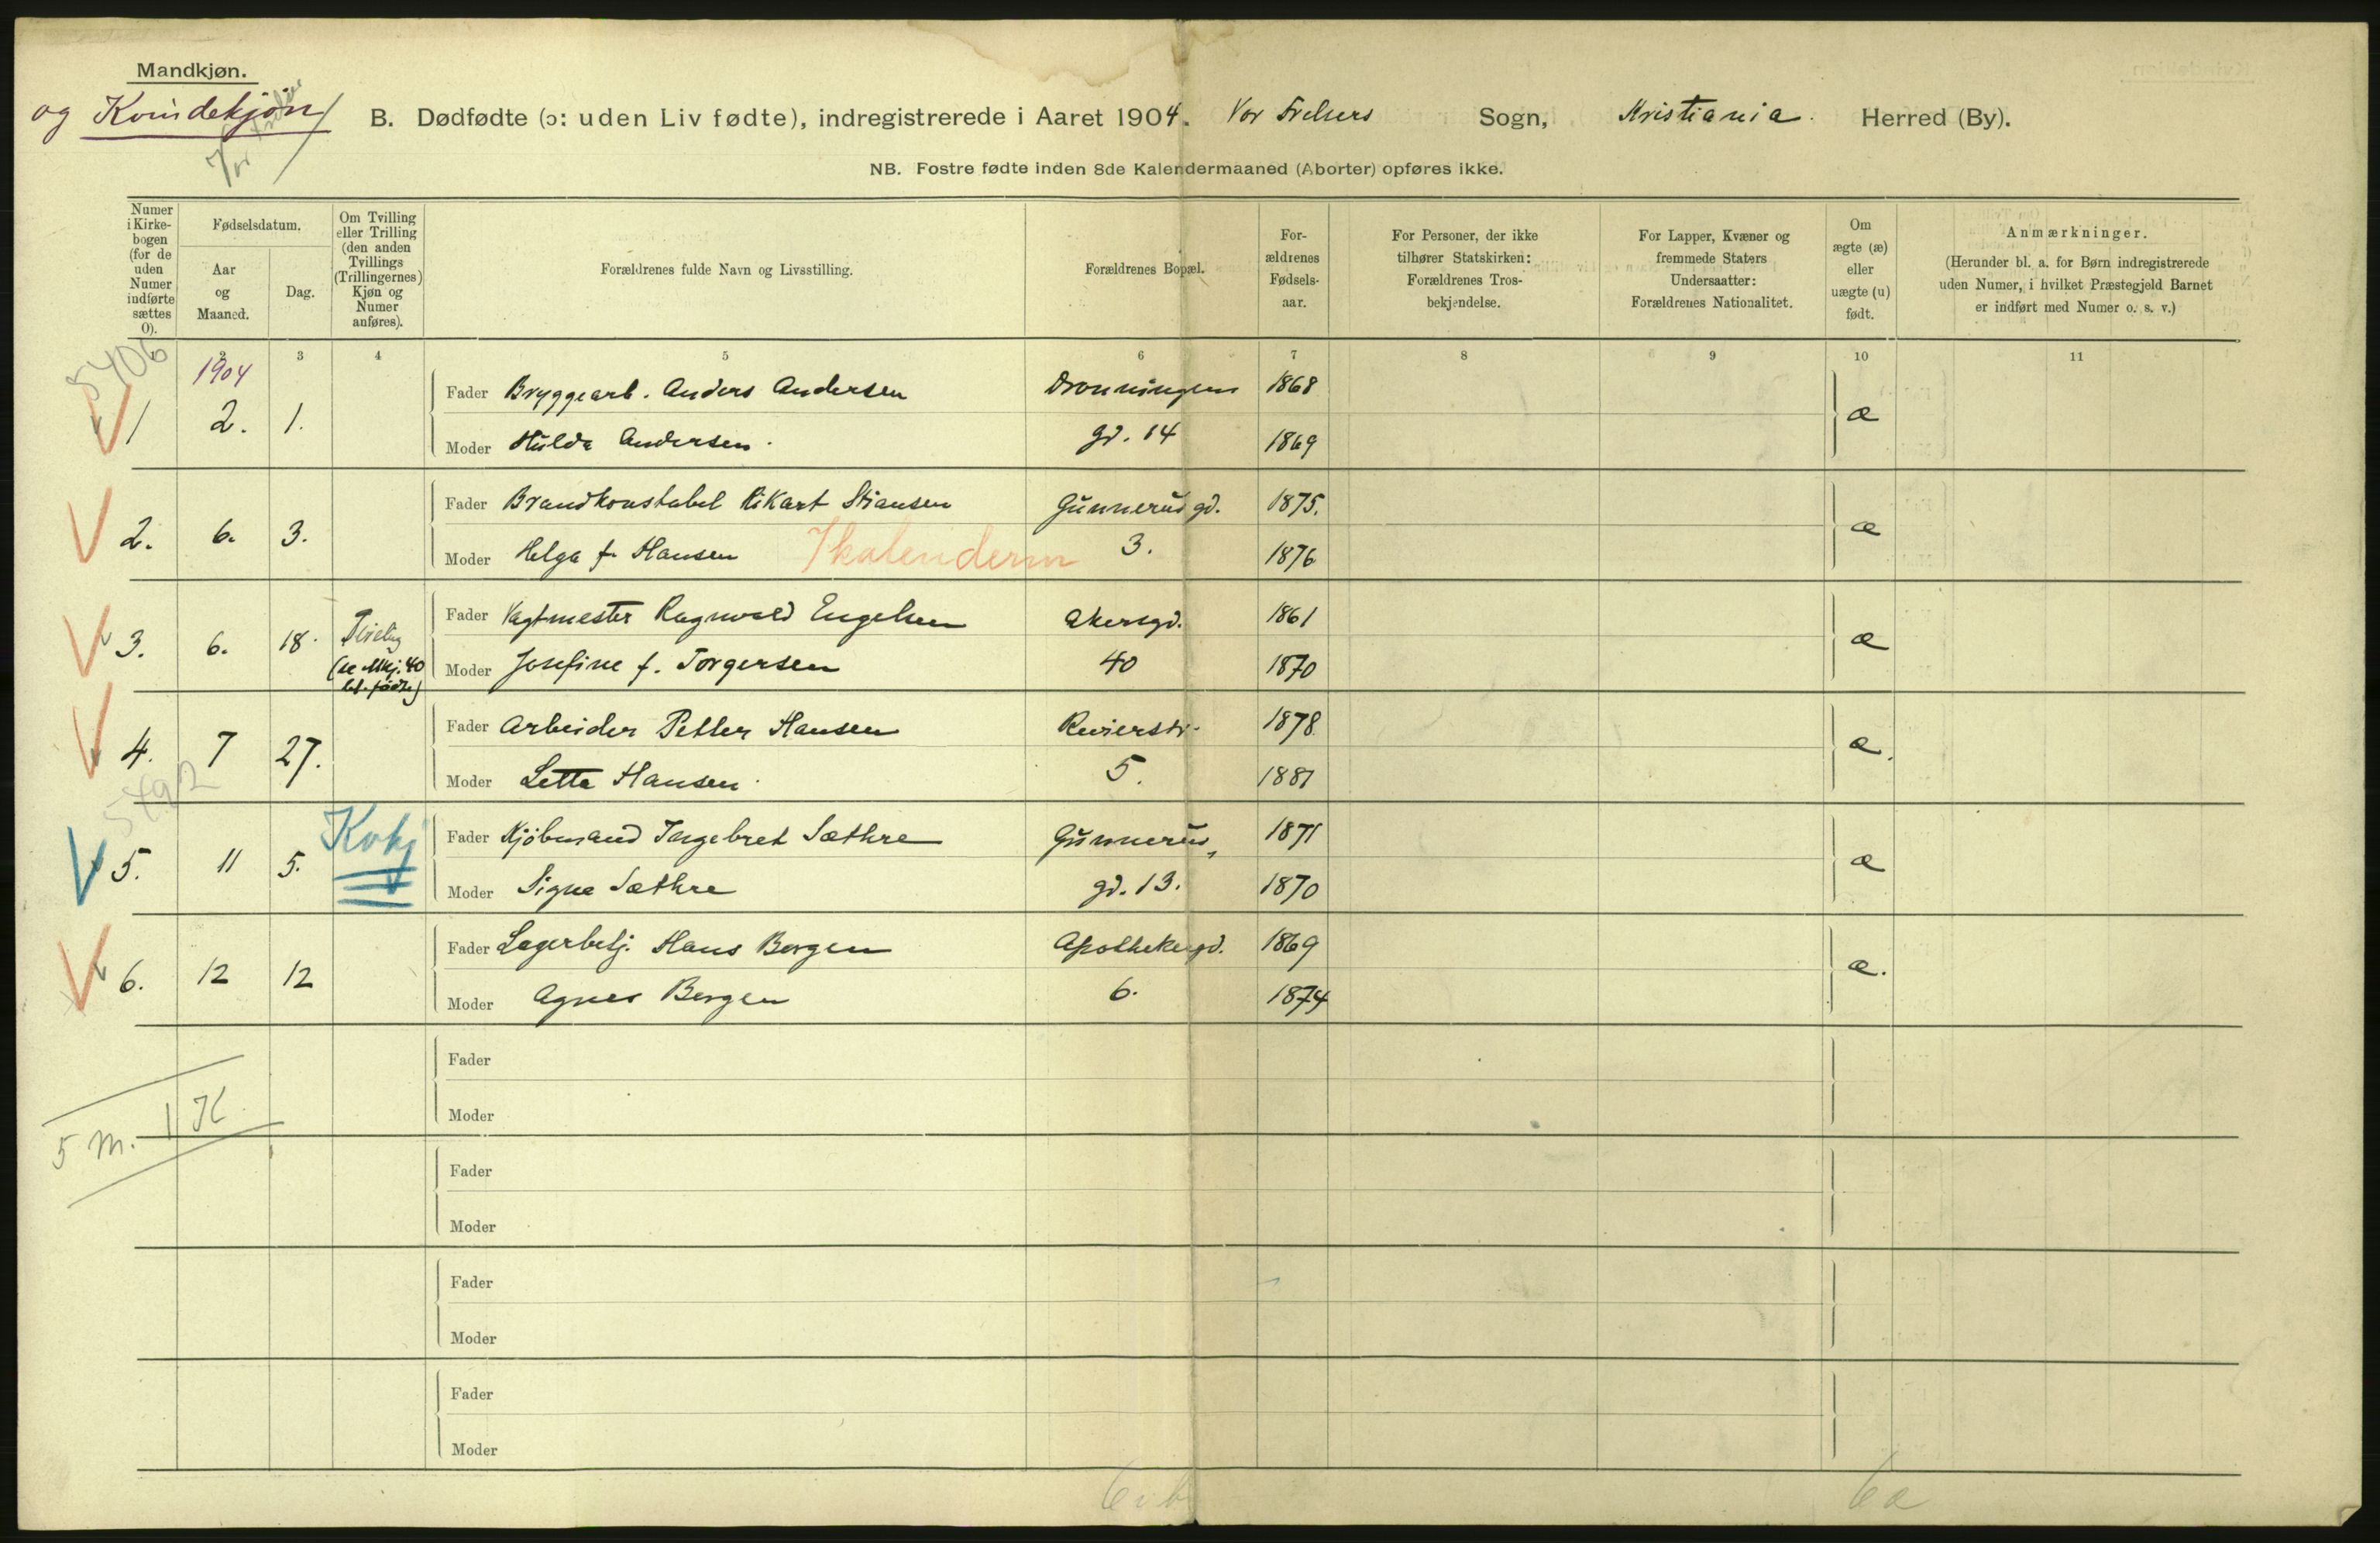 Mandkjøn.
og Kvindekjøn
B. Dødfødte (ɔ: uden Liv fødte), indregistrerede i Aaret 1904. Vor Frelsers Sogn, Kristiania. Herred (By).
NB. Fostre fødte inden 8de Kalendermaaned (Aborter) opføres ikke.
Numer i Kirkebogen (for de uden Numer indførte sættes 0).
Fødselsdatum.
Aar og Maaned.
Dag.
Om Tvilling eller Trilling (den anden Tvillings (Trillingernes) Kjøn og Numer anføres).
Forældrenes fulde Navn og Livsstilling.
Forældrenes Bopæl.
Forældrenes Fødselsaar.
For Personer, der ikke tilhører Statskirken: Forældrenes Trosbekjendelse.
For Lapper, Kvæner og fremmede Staters Undersaatter: Forældrenes Nationalitet.
Om ægte (æ) eller uægte (u) født.
Anmærkninger.
(Herunder bl. a. for Børn indregistrerede uden Numer, i hvilket Præstegjeld Barnet er indført med Numer o. s. v.)
3 4 5 6 7 8 9 10 11
5406
1904
Fader Bryggearb. Anders Andersen Dronningens 1868
1 2. 1. æ
Moder Hulda Andersen. gd. 14 1869
Fader Brandkonstabel Rikart Stiansen Gunnerus gd. 1875.
2. 6. 3. æ
Moder Helga f. Hansen 7 kalenderm 3. 1876
Fader Vagtmester Ragnvald Engelsen Akersgd. 1861
3. 6. 18. æ
(se Mkj. 40 lev. fødte)
Moder Josefine f. Torgersen 40 1870
Fader Arbeider Petter Hansen Revierstr. 1878
4. 7 27. æ.
Moder Letta Hansen. 5. 1881
5492
Kvkj
Fader Kjøbmand Ingebret Sæthre Gunnerus, 1871
5. 11 5. æ
Moder Signe Sæthre gd. 13. 1870
Fader Lagerbetj. Hans Bergen Apothekergd. 1869
6. 12 12 æ.
Moder Agnes Bergen 6. 1874
Fader
Moder
5 m. 1 K
Fader
Moder
Fader
Moder
Fader
Moder
6 æ